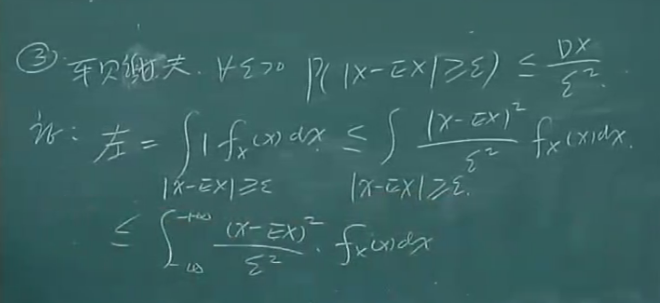 ③ 车贝谢夫. ∀ε>0 P(|X-EX|≥ε) ≤ DX/ε².
证: 左 = ∫_{|x-EX|≥ε} 1 f_X(x)dx ≤ ∫_{|x-EX|≥ε} (x-EX)²/ε² f_X(x)dx.
≤ ∫_{-∞}^{+∞} (x-EX)²/ε² · f_X(x)dx